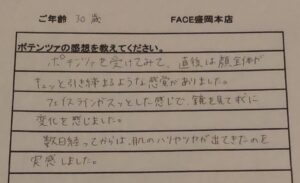 ご年齢 30 歳 FACE盛岡本店
ポテンツァの感想を教えてください。
ポテンツァを受けてみて、直後は顔全体が
キュッと引き締まるような感覚がありました。
フェイスラインがスッとした感じで、鏡を見てすぐに
変化を感じました。
数日経ってからは、肌のハリやツヤが出てきたのを
実感しました。